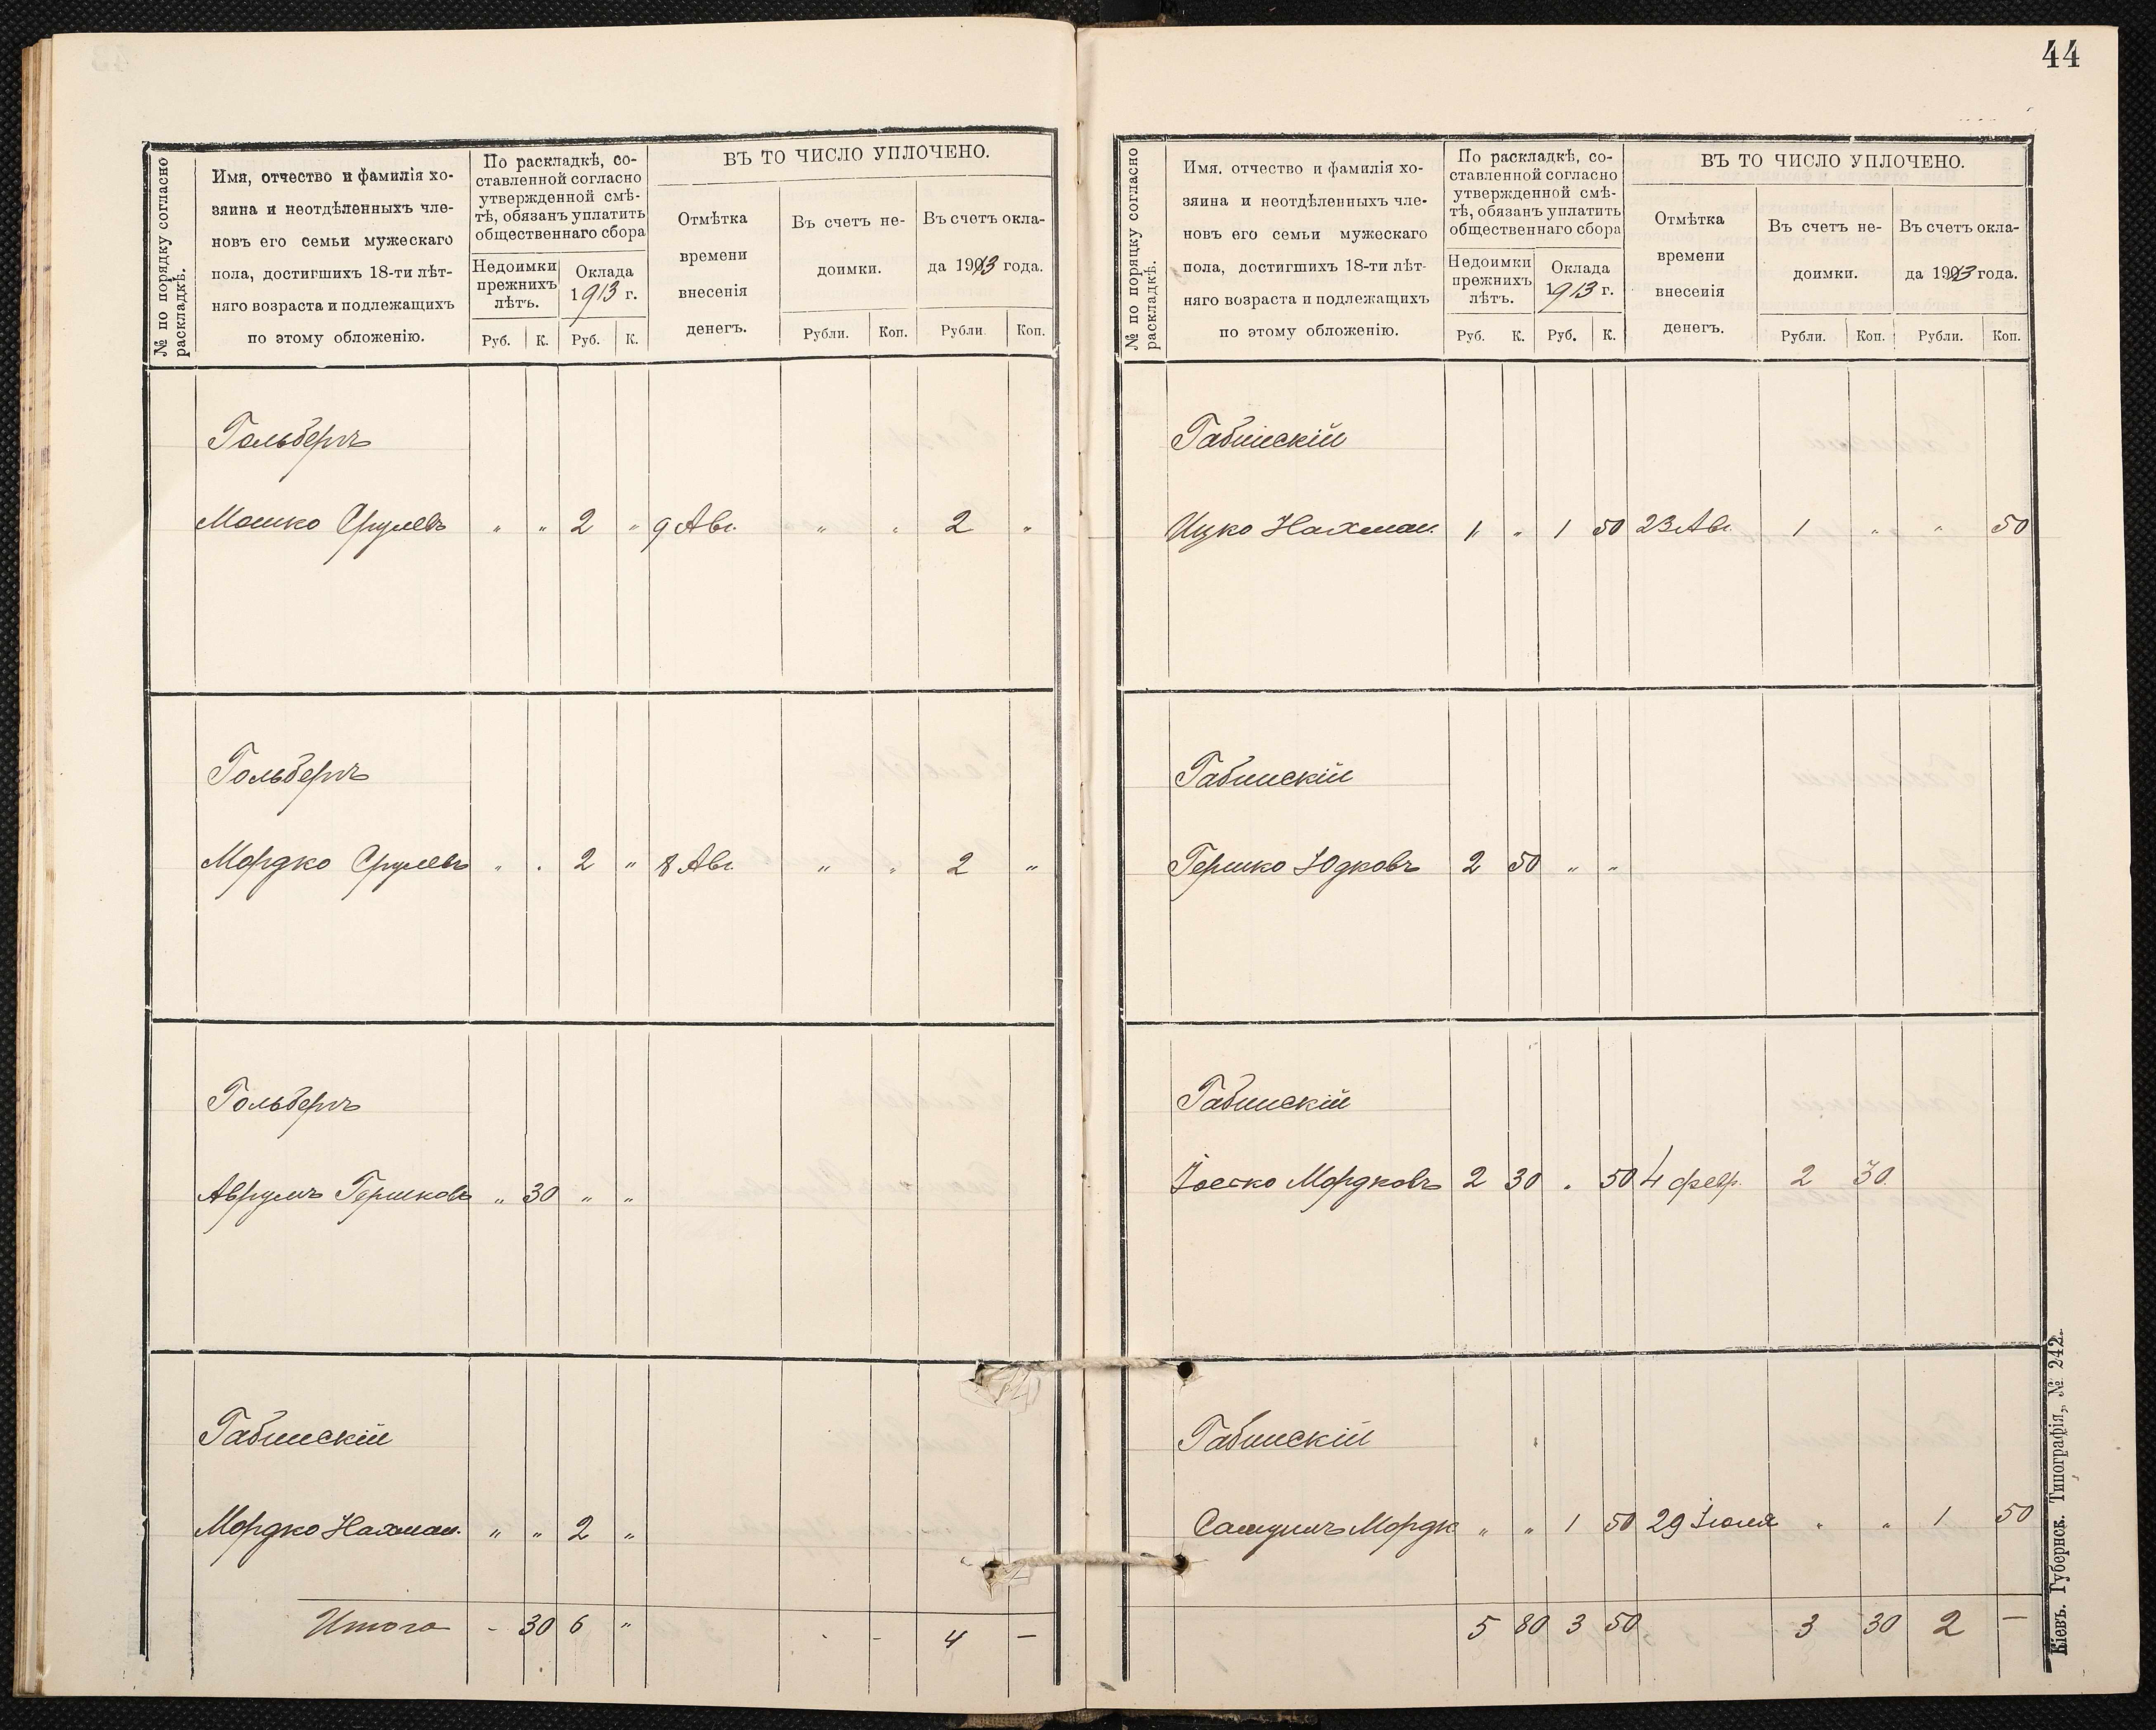 44
№ по порядку согласно раскладкѣ.
Имя, отчество и фамилія хо-
зяина и неотдѣленныхъ чле-
новъ его семьи мужескаго
пола, достигшихъ 18-ти лѣт-
няго возраста и подлежащихъ
по этому обложенію.
По раскладкѣ, со-
ставленной согласно
утвержденной смѣ-
тѣ, обязанъ уплатить
общественнаго сбора
Недоимки
прежнихъ
лѣтъ.
Оклада
1913 г.
Руб. К. Руб. К.
ВЪ ТО ЧИСЛО УПЛОЧЕНО.
Отмѣтка
времени
внесенія
денегъ.
Въ счетъ не-
доимки.
Въ счетъ окла-
да 1913 года.
Рубли. Коп. Рубли. Коп.
Гольбергъ
Мошко Срулевъ " " 2 " 9 Авг. " " 2 "
Гольбергъ
Мордко Срулевъ " " 2 " 8 Авг. " " 2 "
Гольбергъ
Аврумъ Гершковъ " 30 " "
Габинскій
Мордко Нахман. " " 2 "
Итого - 30 6 " - - 4 —
№ по поряцку согласно раскладкѣ.
Имя. отчество и фамилія хо-
зяина и неотдѣленныхъ чле-
новъ его семьи мужескаго
пола, достигшихъ 18-ти лѣт-
няго возраста и подлежащихъ
по этому обложенію.
По раскладкѣ, со-
ставленной согласно
утвержденной смѣ-
тѣ, обязанъ уплатить
общественнаго сбора
Недоимки
прежнихъ
лѣтъ.
Оклада
1913 г.
Руб. К. Руб. К.
ВЪ ТО ЧИСЛО УПЛОЧЕНО.
Отмѣтка
времени
внесенія
денегъ.
Въ счетъ не-
доимки.
Въ счетъ окла-
да 1913 года.
Рубли. Коп. Рубли. Коп.
Габинскій
Ицко Нахман. 1 " 1 50 23 Авг. 1 " " 50
Габинскій
Гершко Юдковъ 2 50 " "
Габинскій
Іоско Мордковъ 2 30 " 50 4 февр. 2 30
Габинскій
Самуилъ Мордк " " 1 50 29 Іюля " " 1 50
5 80 3 50 3 30 2 —
Кіевъ. Губернск. Типографія„ № 242.